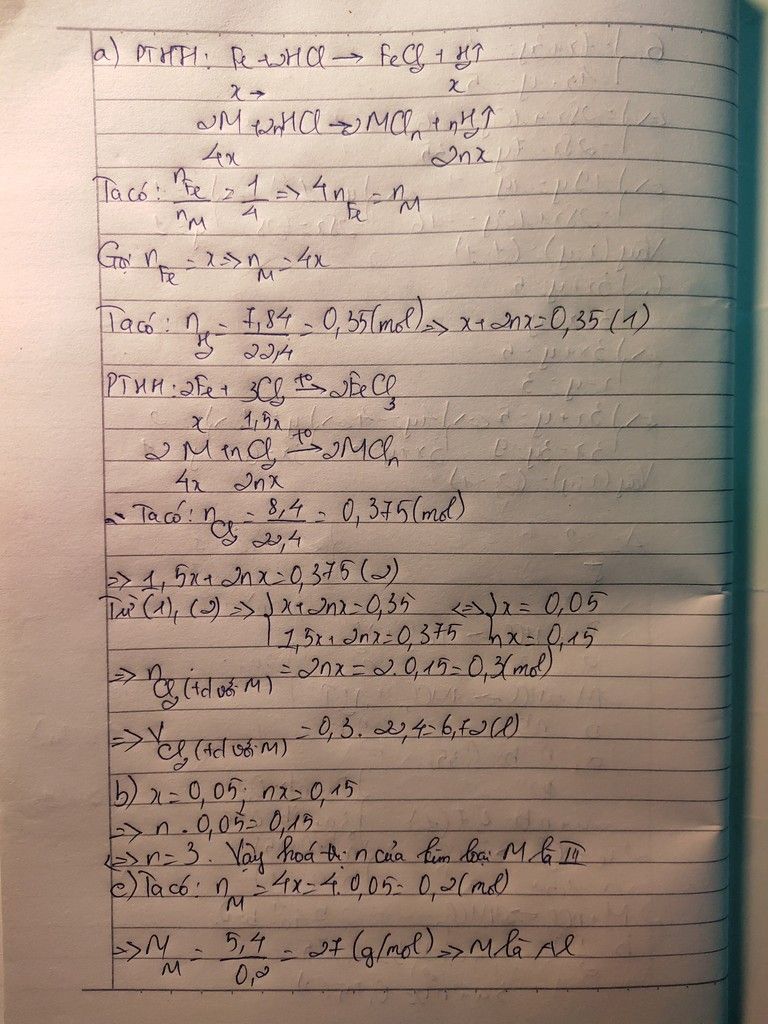 a) PTHH: Fe + 2HCl → FeCl₂ + H₂↑
x → x
2M + 2nHCl → 2MClₙ + nH₂↑
4x 2nx
Ta có: n_Fe / n_M = 1/4 => 4n_Fe = n_M
Gọi n_Fe = x => n_M = 4x
Ta có: n_H₂ = 7,84/22,4 = 0,35(mol) => x + 2nx = 0,35 (1)
PTHH: 2Fe + 3Cl₂ →(t°) 2FeCl₃
x 1,5x
2M + nCl₂ →(t°) 2MClₙ
4x 2nx
Ta có: n_Cl₂ = 8,4/22,4 = 0,375(mol)
=> 1,5x + 2nx = 0,375 (2)
Từ (1), (2) => { x + 2nx = 0,35 <=> { x = 0,05
1,5x + 2nx = 0,375 nx = 0,15
=> n_Cl₂ (td với M) = 2nx = 2.0,15 = 0,3(mol)
=> V_Cl₂ (td với M) = 0,3. 22,4 = 6,72(l)
b) x = 0,05; nx = 0,15
=> n . 0,05 = 0,15
<=> n = 3. Vậy hoá trị n của kim loại M là III
c) Ta có: n_M = 4x = 4.0,05 = 0,2(mol)
=> M_M = 5,4/0,2 = 27 (g/mol) => M là Al